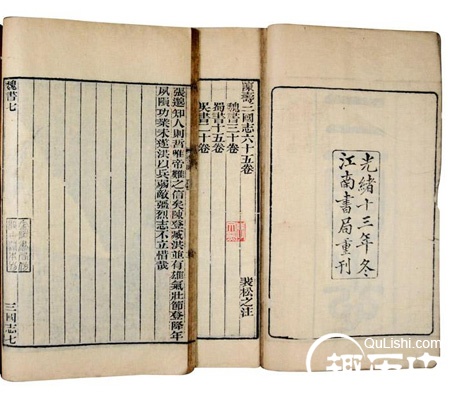 光緒十三年冬
江南書局重刊
陳壽三國志六十五卷
魏書三十卷
蜀書十五卷
吳書二十卷
裴松之注
張邈知人則哲唯帝難之信矣陳登臧洪並有雄氣壯節登降年
夙隕功業未遂洪以兵弱敵彊烈志不立惜哉
魏書七
三國志七
QuLishi.com